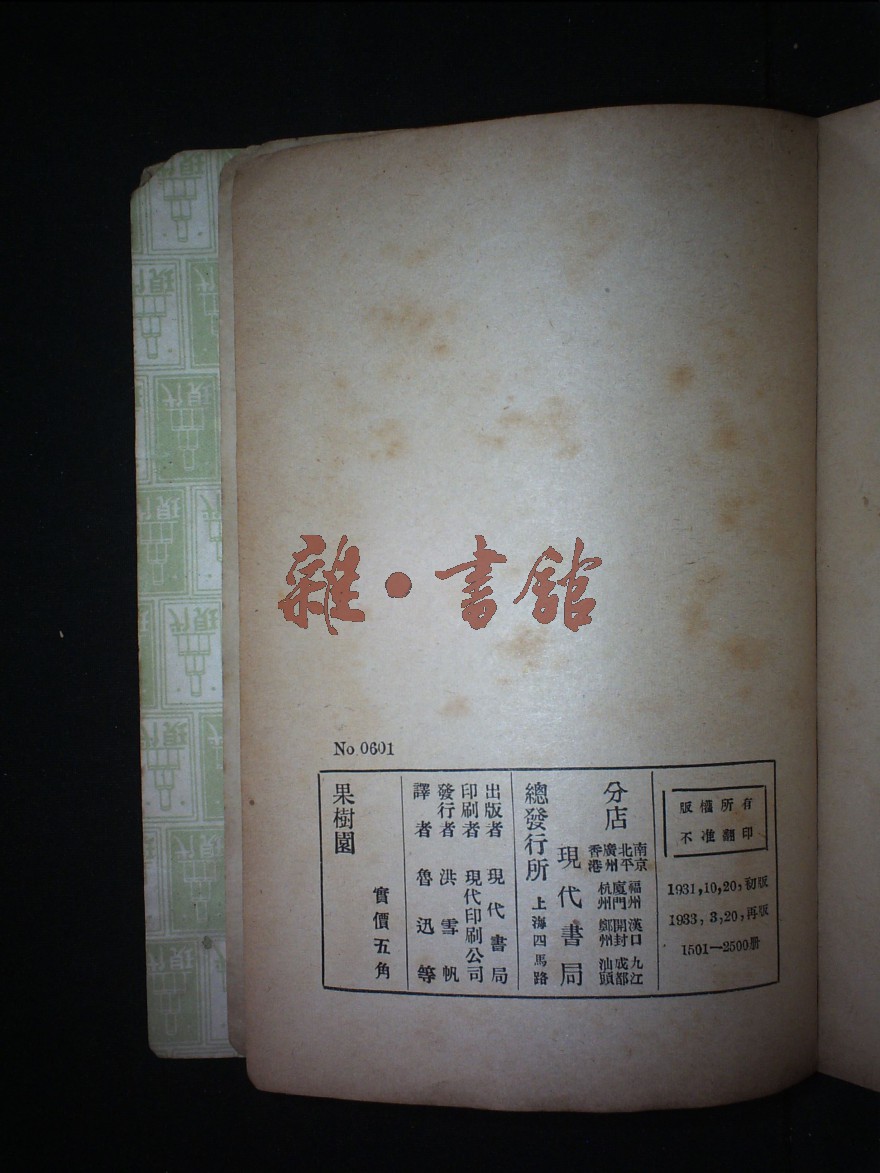 雜·書館
No 0601
版權所有
不准翻印
1931,10,20,初版
1933, 3,20,再版
1501—2500册
分店
南京 福州 漢口 九江
北平 廈門 開封 成都
廣州 杭州 鄭州 汕頭
香港
總發行所 現代書局
上海四馬路
出版者 現代書局
印刷者 現代印刷公司
發行者 洪雪帆
譯者 魯迅等
實價五角
果樹園
現代